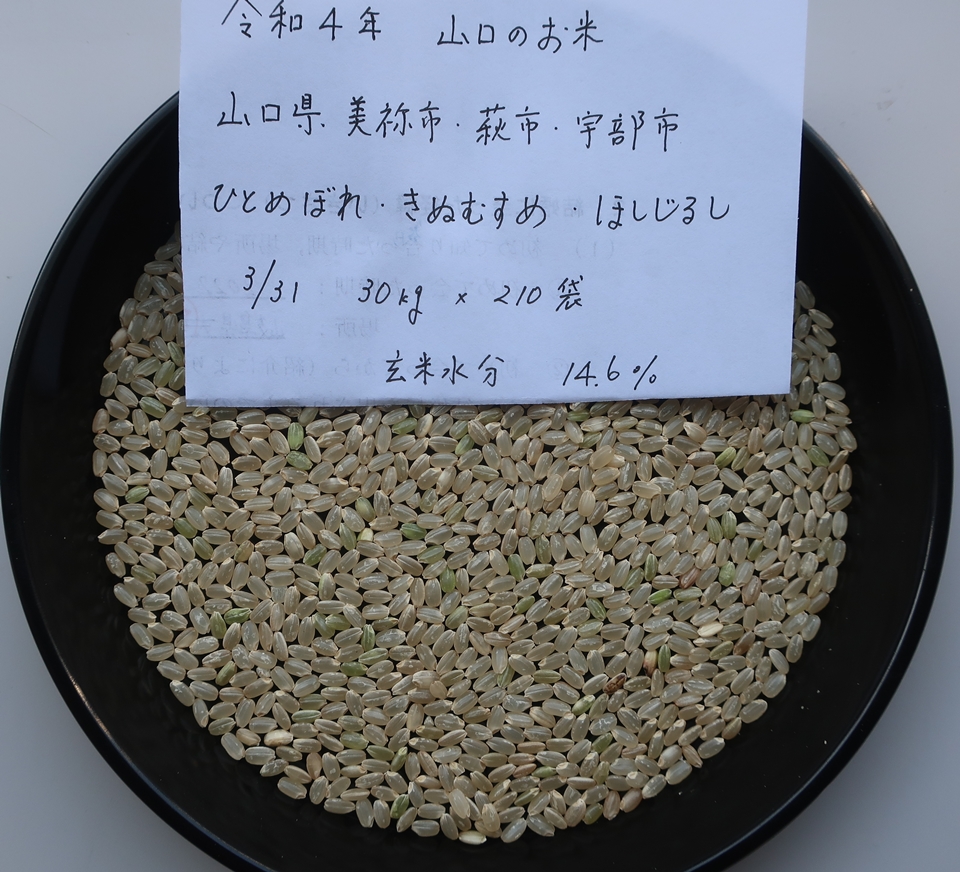 令和4年 山口のお米
山口県 美祢市・萩市・宇部市
ひとめぼれ・きぬむすめ・ほしじるし
3/31 30kg × 210袋
玄米水分 14.6%